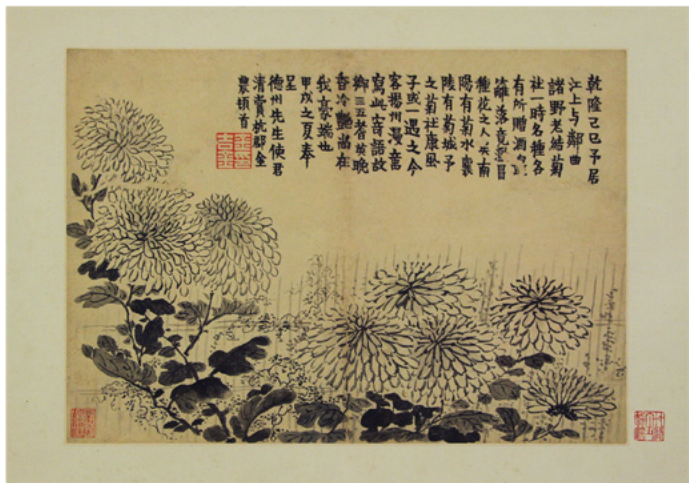 乾隆己巳予居
江上与鄰曲
諸野老結菊
社一時名種各
有所贈酒
籬落竟
種花之人
陽有菊水襄
陵有菊城予
之菊社康風
子或一遇之今
客揚州漫意
寫此寄語故
鄉三五耆英晚
香冷艷尚在
我豪端也
甲戌之夏奉
呈
德州先生使君
清賞杭郡金
農頓首